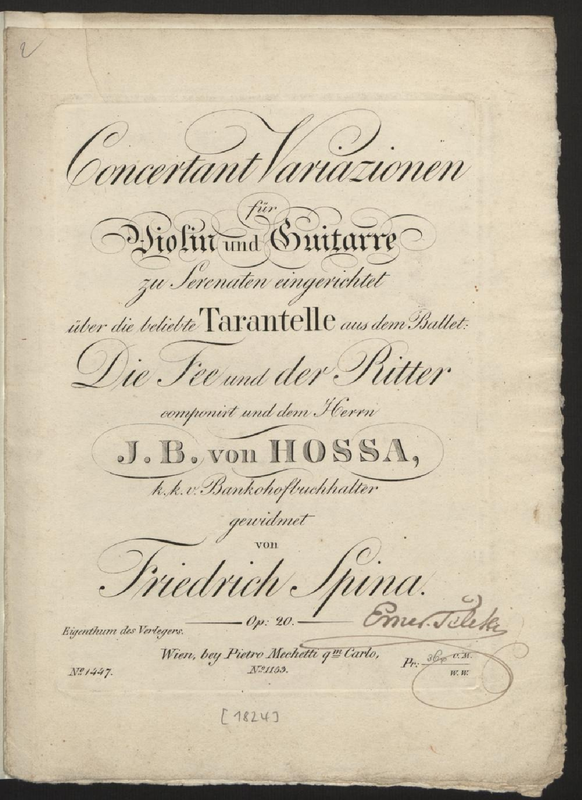 2
Concertant Variazionen
für
Violin und Guitarre
zu Serenaten eingerichtet
über die beliebte Tarantelle aus dem Ballet:
Die Fee und der Ritter
componirt und dem Herrn
J. B. von HOSSA,
k. k. v. Bankohofbuchhalter
gewidmet
von
Friedrich Spina.
Op: 20.
Eigenthum des Verlegers.
Wien, bey Pietro Mechetti qm Carlo,
No 1447.
No 1153.
Pr: C. M.
W. W.
[1824]